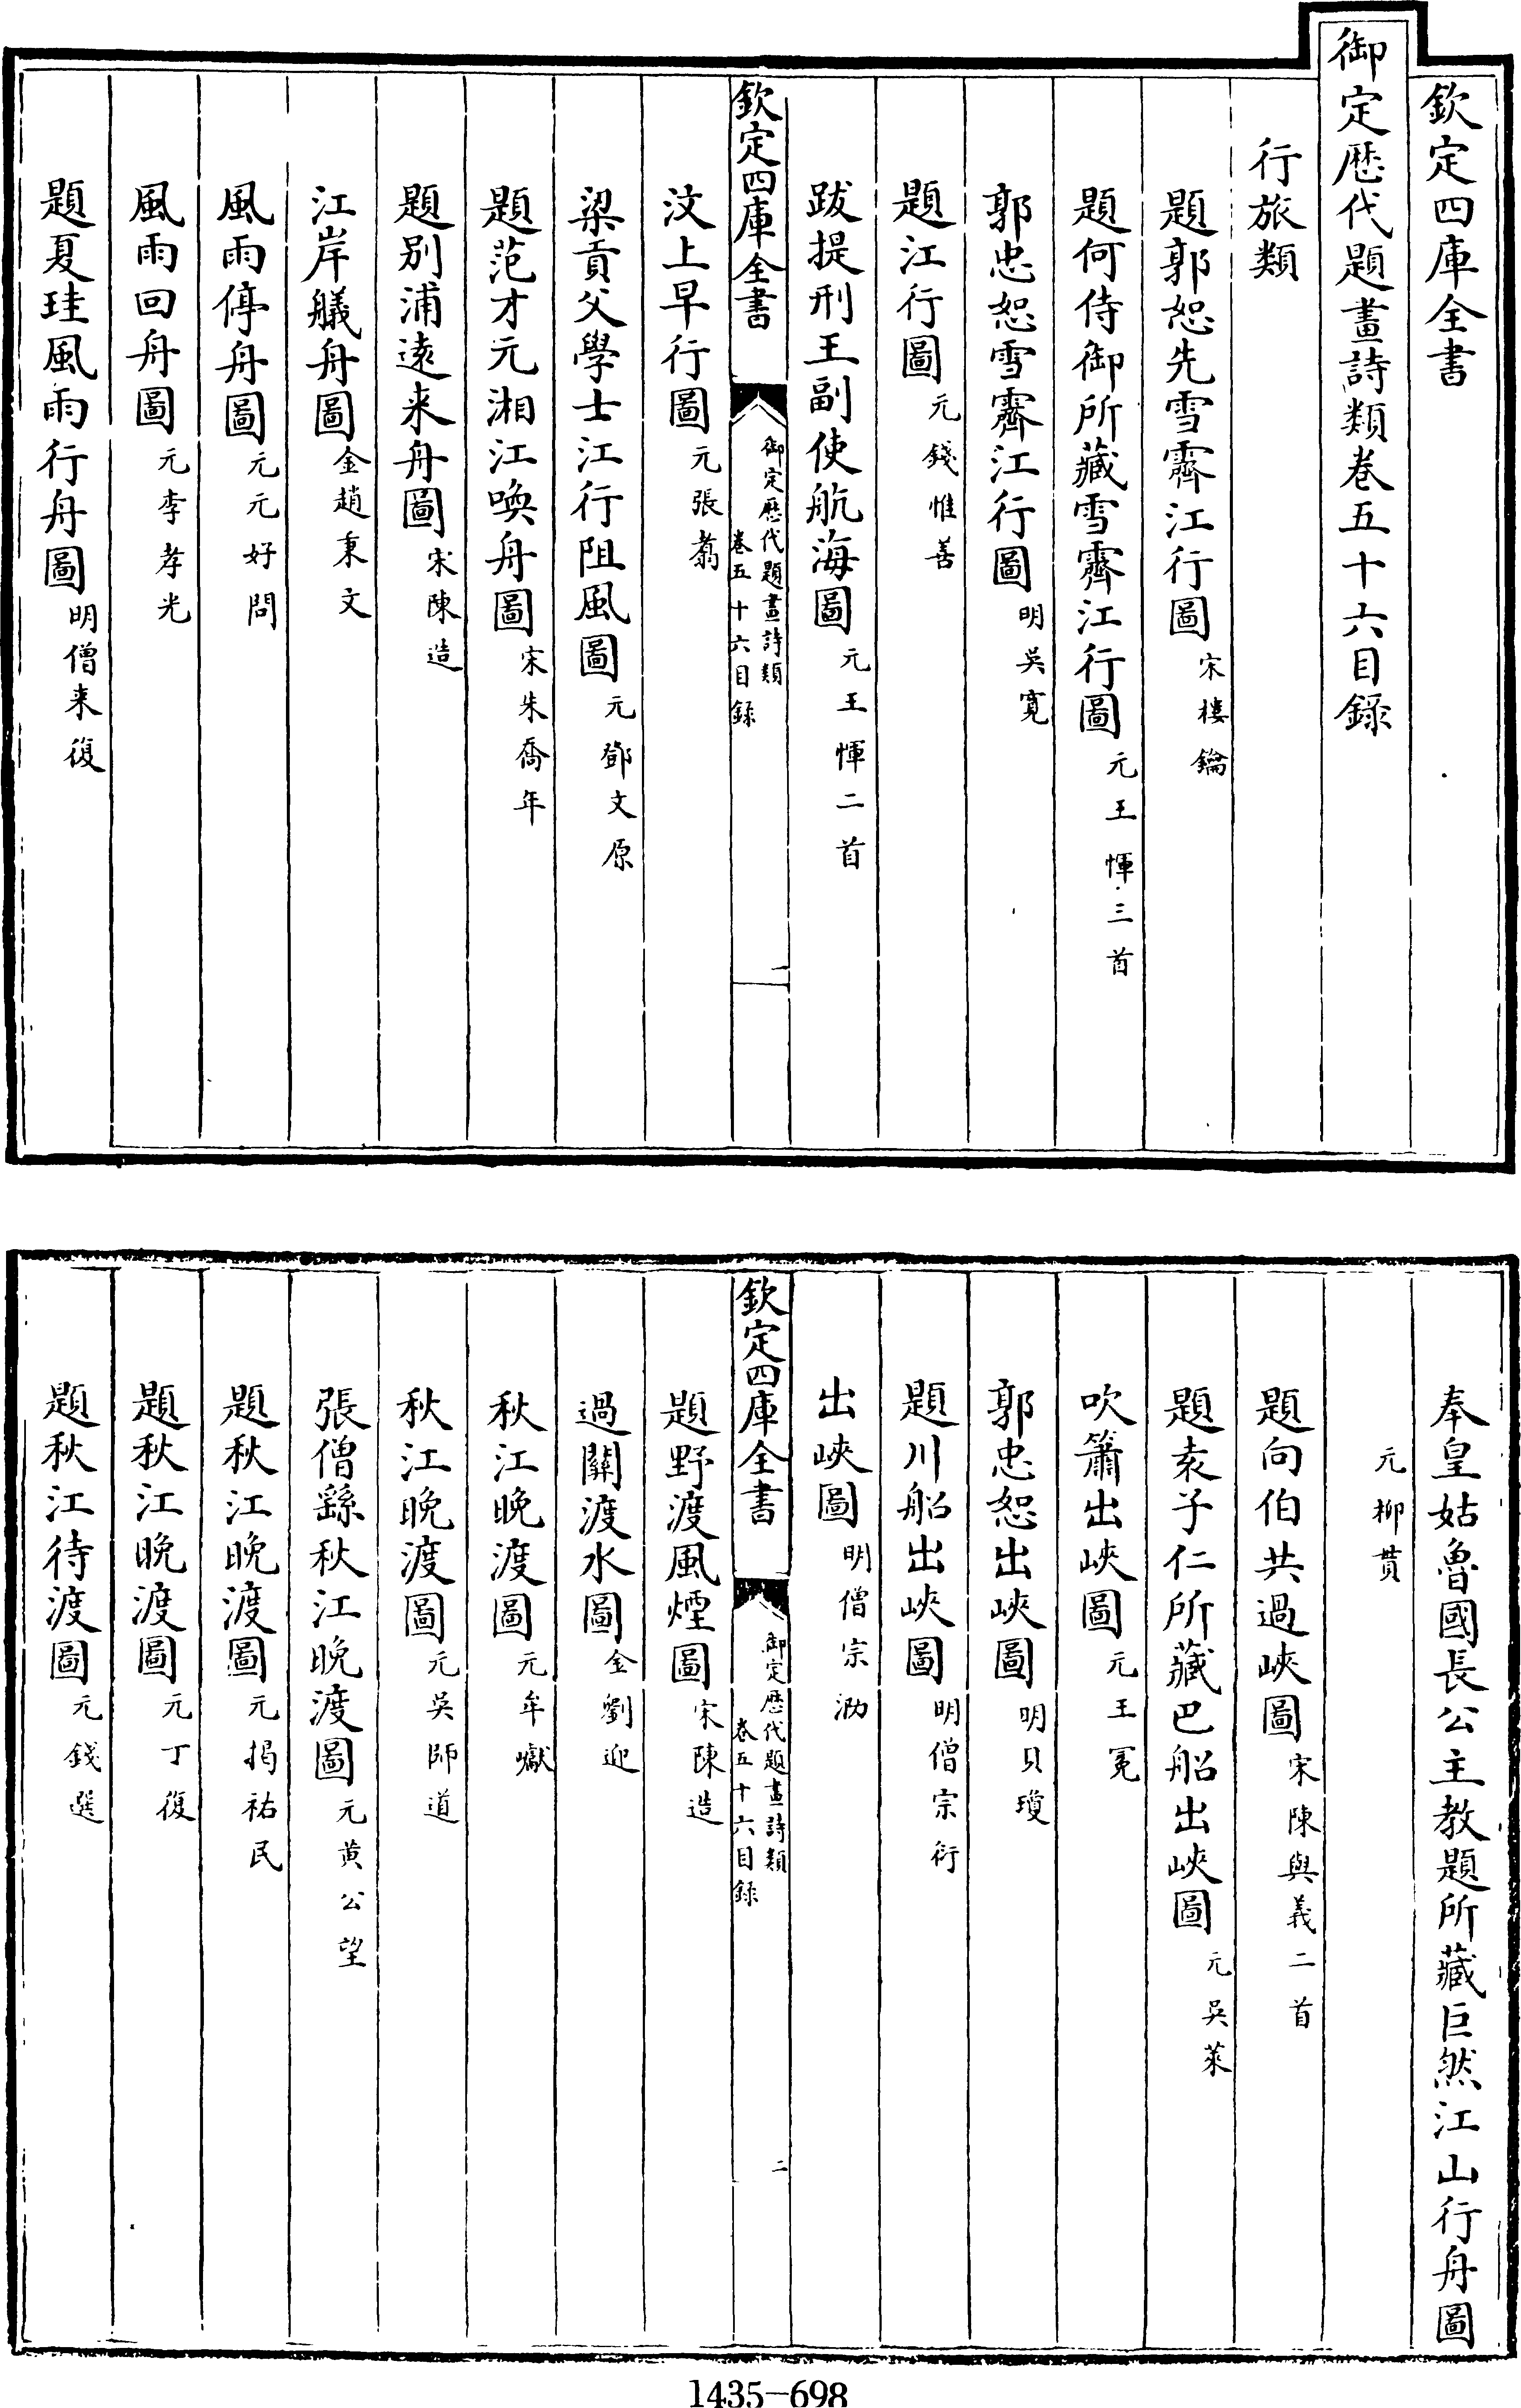 欽定四庫全書
御定歷代題畫詩類卷五十六目錄
行旅類
題郭恕先雪霽江行圖宋樓鑰
題何侍御所藏雪霽江行圖元王惲三首
郭忠恕雪霽江行圖明吳寛
題江行圖元錢惟善
跋提刑王副使航海圖元王惲二首
欽定四庫全書
御定歷代題畫詩類
卷五十六目錄
一
汶上早行圖元張翥
梁貢父學士江行阻風圖元鄧文原
題范才元湘江喚舟圖宋朱喬年
題別浦遠来舟圖宋陳造
江岸艤舟圖金趙秉文
風雨停舟圖元元好問
風雨回舟圖元李孝光
題夏珪風雨行舟圖明僧来復
奉皇姑魯國長公主教題所藏巨然江山行舟圖
元柳貫
題向伯共過峽圖宋陳與義二首
題袁子仁所藏巴船出峽圖元吳萊
吹簫出峽圖元王冕
郭忠恕出峽圖明貝瓊
題川船出峽圖明僧宗衍
出峽圖明僧宗泐
欽定四庫全書
御定歷代題畫詩類
卷五十六目錄
二
題野渡風煙圖宋陳造
過關渡水圖金劉迎
秋江晚渡圖元牟巘
秋江晚渡圖元吳師道
張僧繇秋江晚渡圖元黄公望
題秋江晚渡圖元揭祐民
題秋江晚渡圖元丁復
題秋江待渡圖元錢選
1435-698